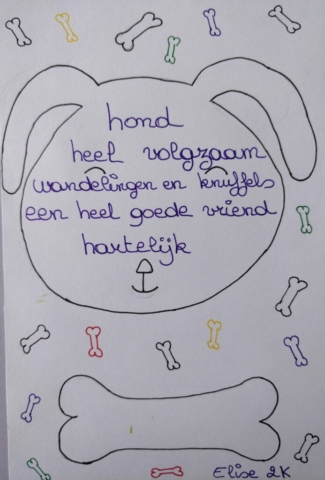 hond
heel volgzaam
wandelingen en knuffels
een heel goede vriend
hartelijk
Elise 2K